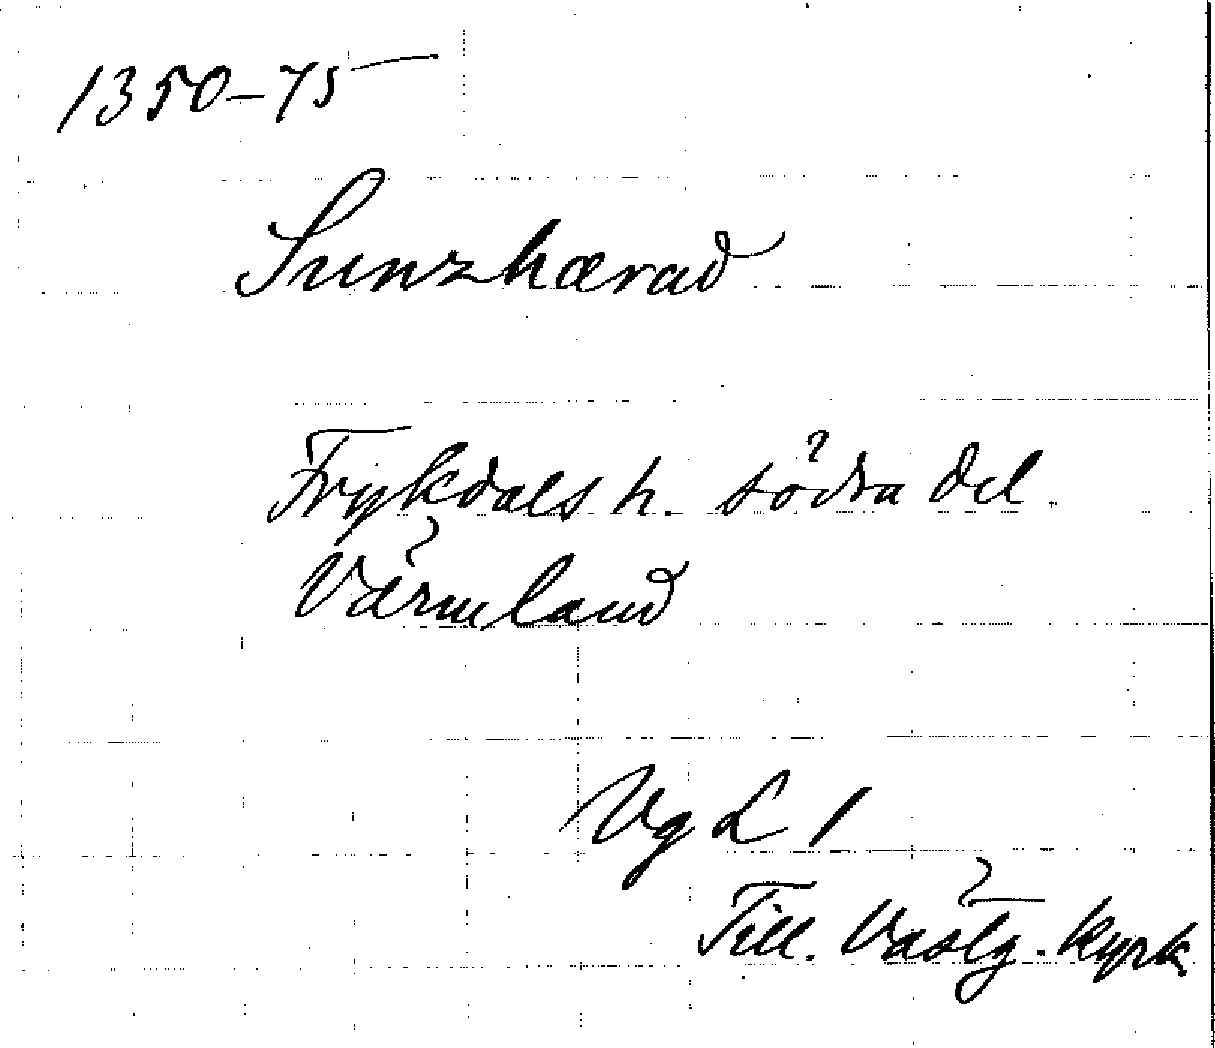 1350-75
Sunzhærad
Frykdals h. södra del.
Värmland
VgL 1
Till. Västg. kyrk.